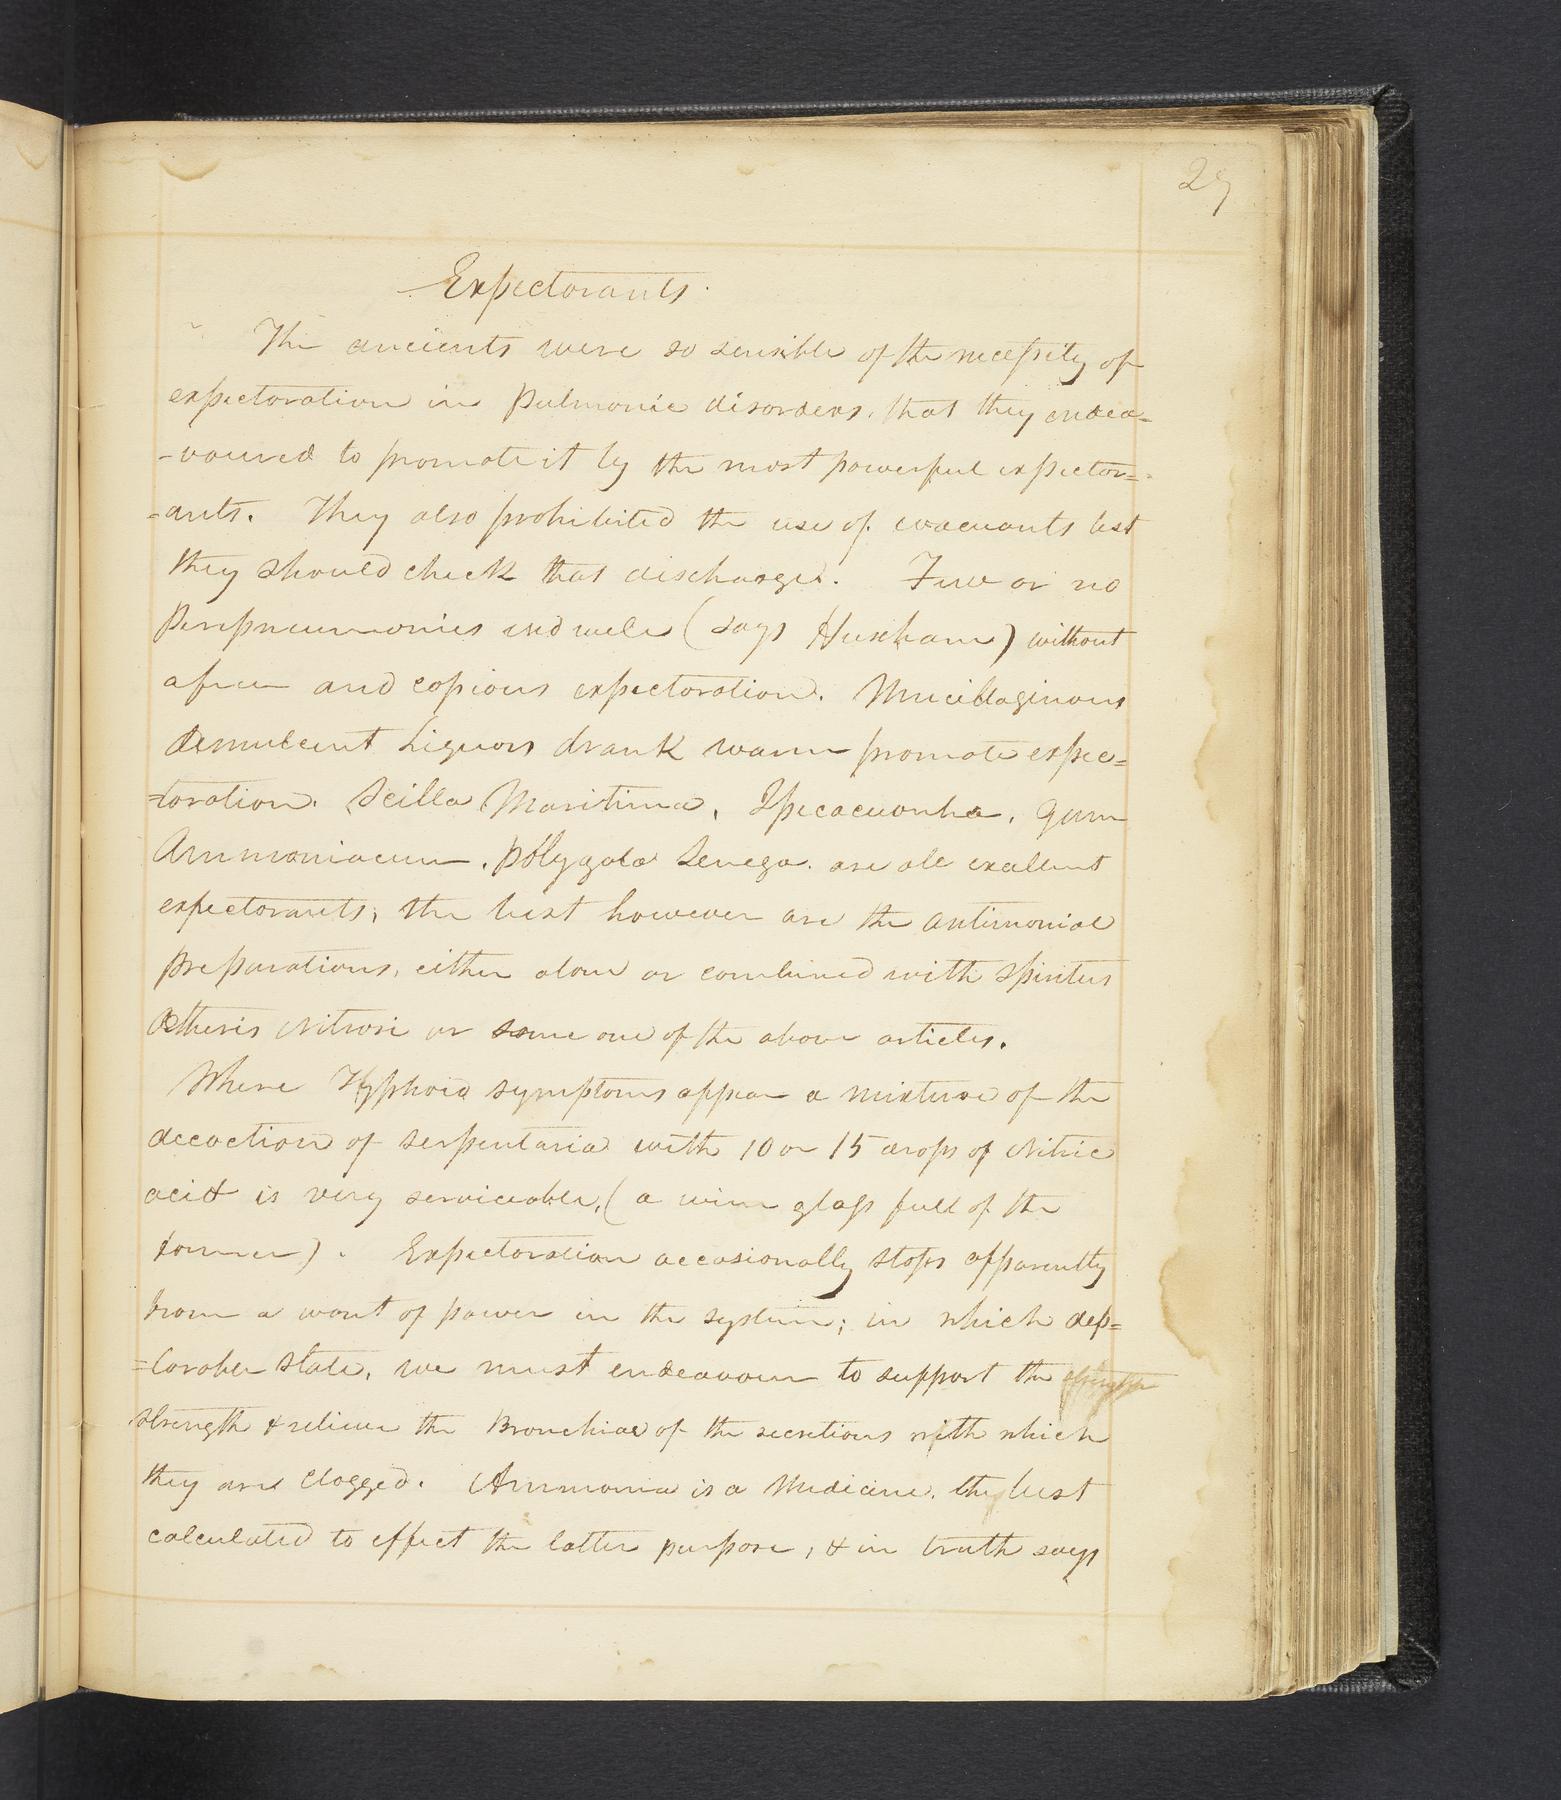 29
Expectorants.
The ancients were so sensible of the necessity of
expectoration in Pulmonic disorders, that they endea=
-voured to promote it by the most powerful expector=
=ants. They also prohibited the use of evacuants lest
they should check that discharge. Few or no
Peripneumonies end well (says Huxham) without
a free and copious expectoration. Mucillaginous
demulcent Liquors drank warm promote expec=
=toration. Scilla Maritima, Ipecacuanha, Gum
Ammoniacum, Polygala Senega. are all exallent
expectorants, the best however are the antimonial
preparations, either alone or combined with Spiritus
Ætheris Nitrosi or some one of the above articles.
Where Typhoid symptoms appear a mixture of the
decoction of serpentaria with 10 or 15 drops of Nitric
acid is very serviceable, (a wine glass full of the
former). Expectoration occasionally stops apparently
from a want of power in the system; in which dep=
=lorable state, we must endeavour to support the
strength & relieve the Bronchiae of the secretions with which
they are clogged. Ammonia is a Medicine, the best
calculated to effect the latter purpose, & in truth says